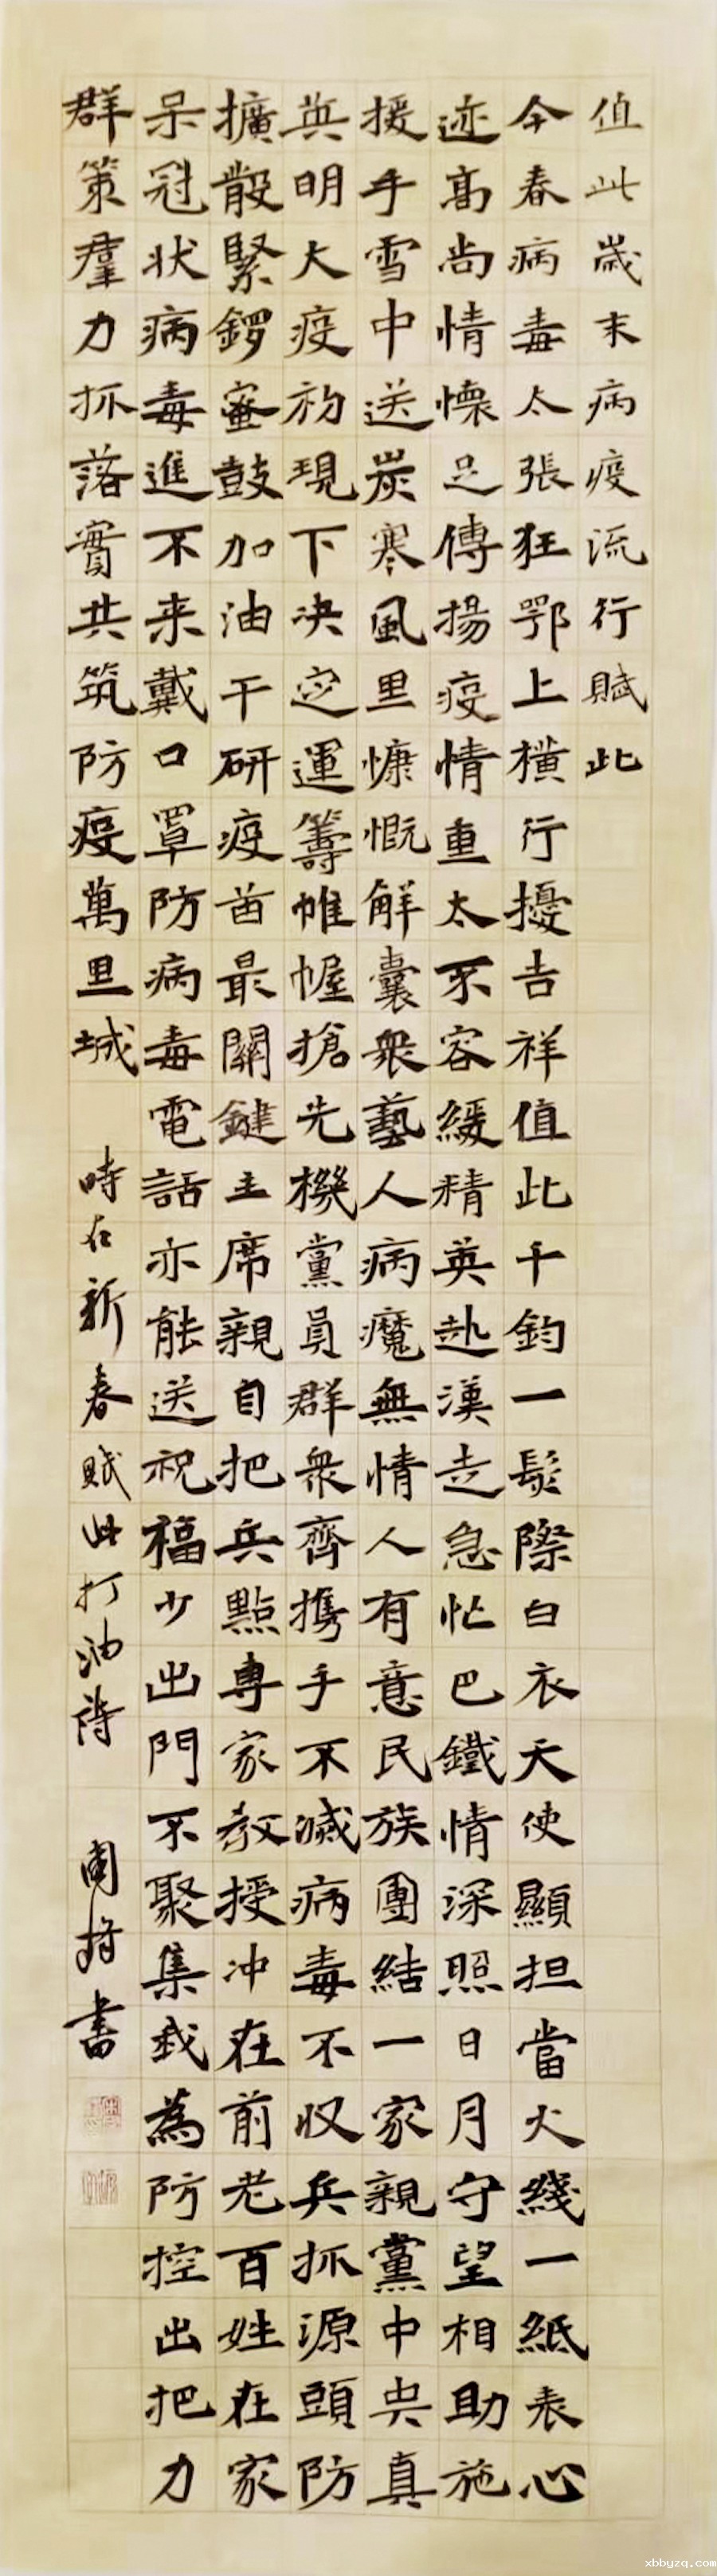 值此歲末病疫流行賦此
今春病毒太張狂鄂上橫行擾吉祥值此千鈞一髮際白衣天使顯担當火綫一紙表心
迹高尚情懷足傳揚疫情重太不容緩精英赴漢走急忙巴鐵情深照日月守望相助施
援手雪中送炭寒風里慷慨解囊衆藝人病魔無情人有意民族團結一家親黨中央真
英明大疫初現下决定運籌帷幄搶先機黨員群衆齊攜手不滅病毒不收兵抓源頭防
擴散緊鑼蜜鼓加油干研疫苗最關鍵主席親自把兵點專家教授冲在前老百姓在家
呆冠状病毒進不来戴口罩防病毒電話亦能送祝福少出門不聚集我為防控出把力
群策羣力抓落實共筑防疫萬里城 時在新春賦此打油詩 書
xbbyzq.com